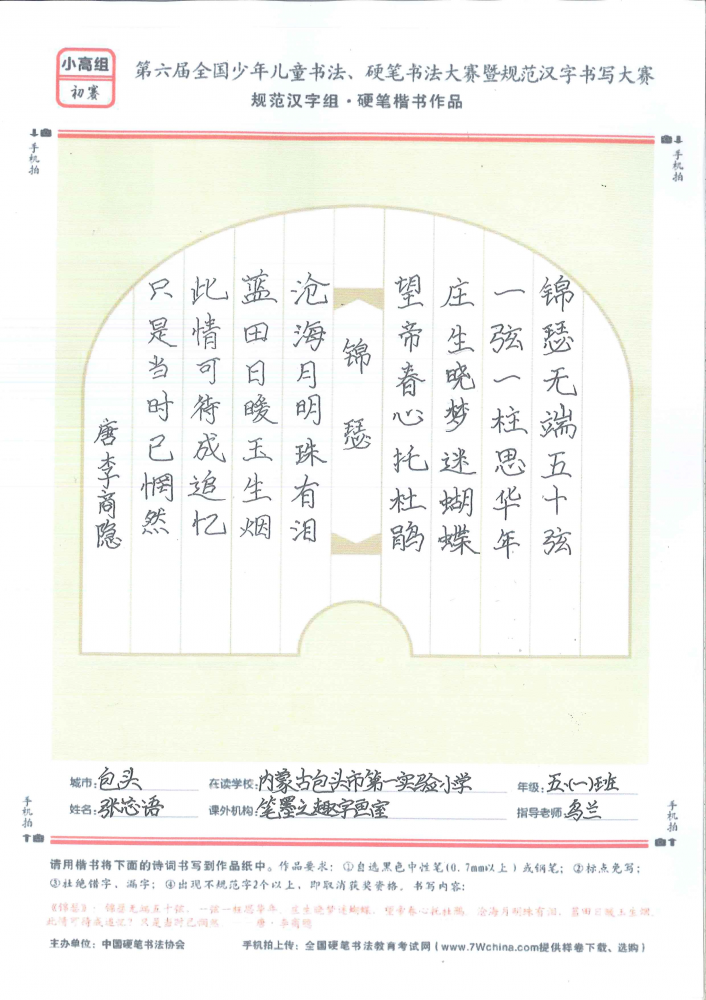 小高组
初赛
第六届全国少年儿童书法、硬笔书法大赛暨规范汉字书写大赛
规范汉字组·硬笔楷书作品
手机拍
手机拍
锦瑟无端五十弦
一弦一柱思华年
庄生晓梦迷蝴蝶
望帝春心托杜鹃
锦瑟
沧海月明珠有泪
蓝田日暖玉生烟
此情可待成追忆
只是当时已惘然
唐李商隐
城市:包头 在读学校:内蒙古包头市第一实验小学 年级:五(一)班
姓名:张芯语 课外机构:笔墨之趣字画室 指导老师:乌兰
手机拍
手机拍
请用楷书将下面的诗词书写到作品纸中。作品要求:①自选黑色中性笔(0.7mm以上)或钢笔;②标点免写;
③杜绝错字、漏字;④出现不规范字2个以上,即取消获奖资格。书写内容:
《锦瑟》:锦瑟无端五十弦,一弦一柱思华年。庄生晓梦迷蝴蝶,望帝春心托杜鹃。沧海月明珠有泪,蓝田日暖玉生烟。
此情可待成追忆?只是当时已惘然。 唐·李商隐
主办单位:中国硬笔书法协会 手机拍上传:全国硬笔书法教育考试网(www.7Wchina.com提供样卷下载、选购)